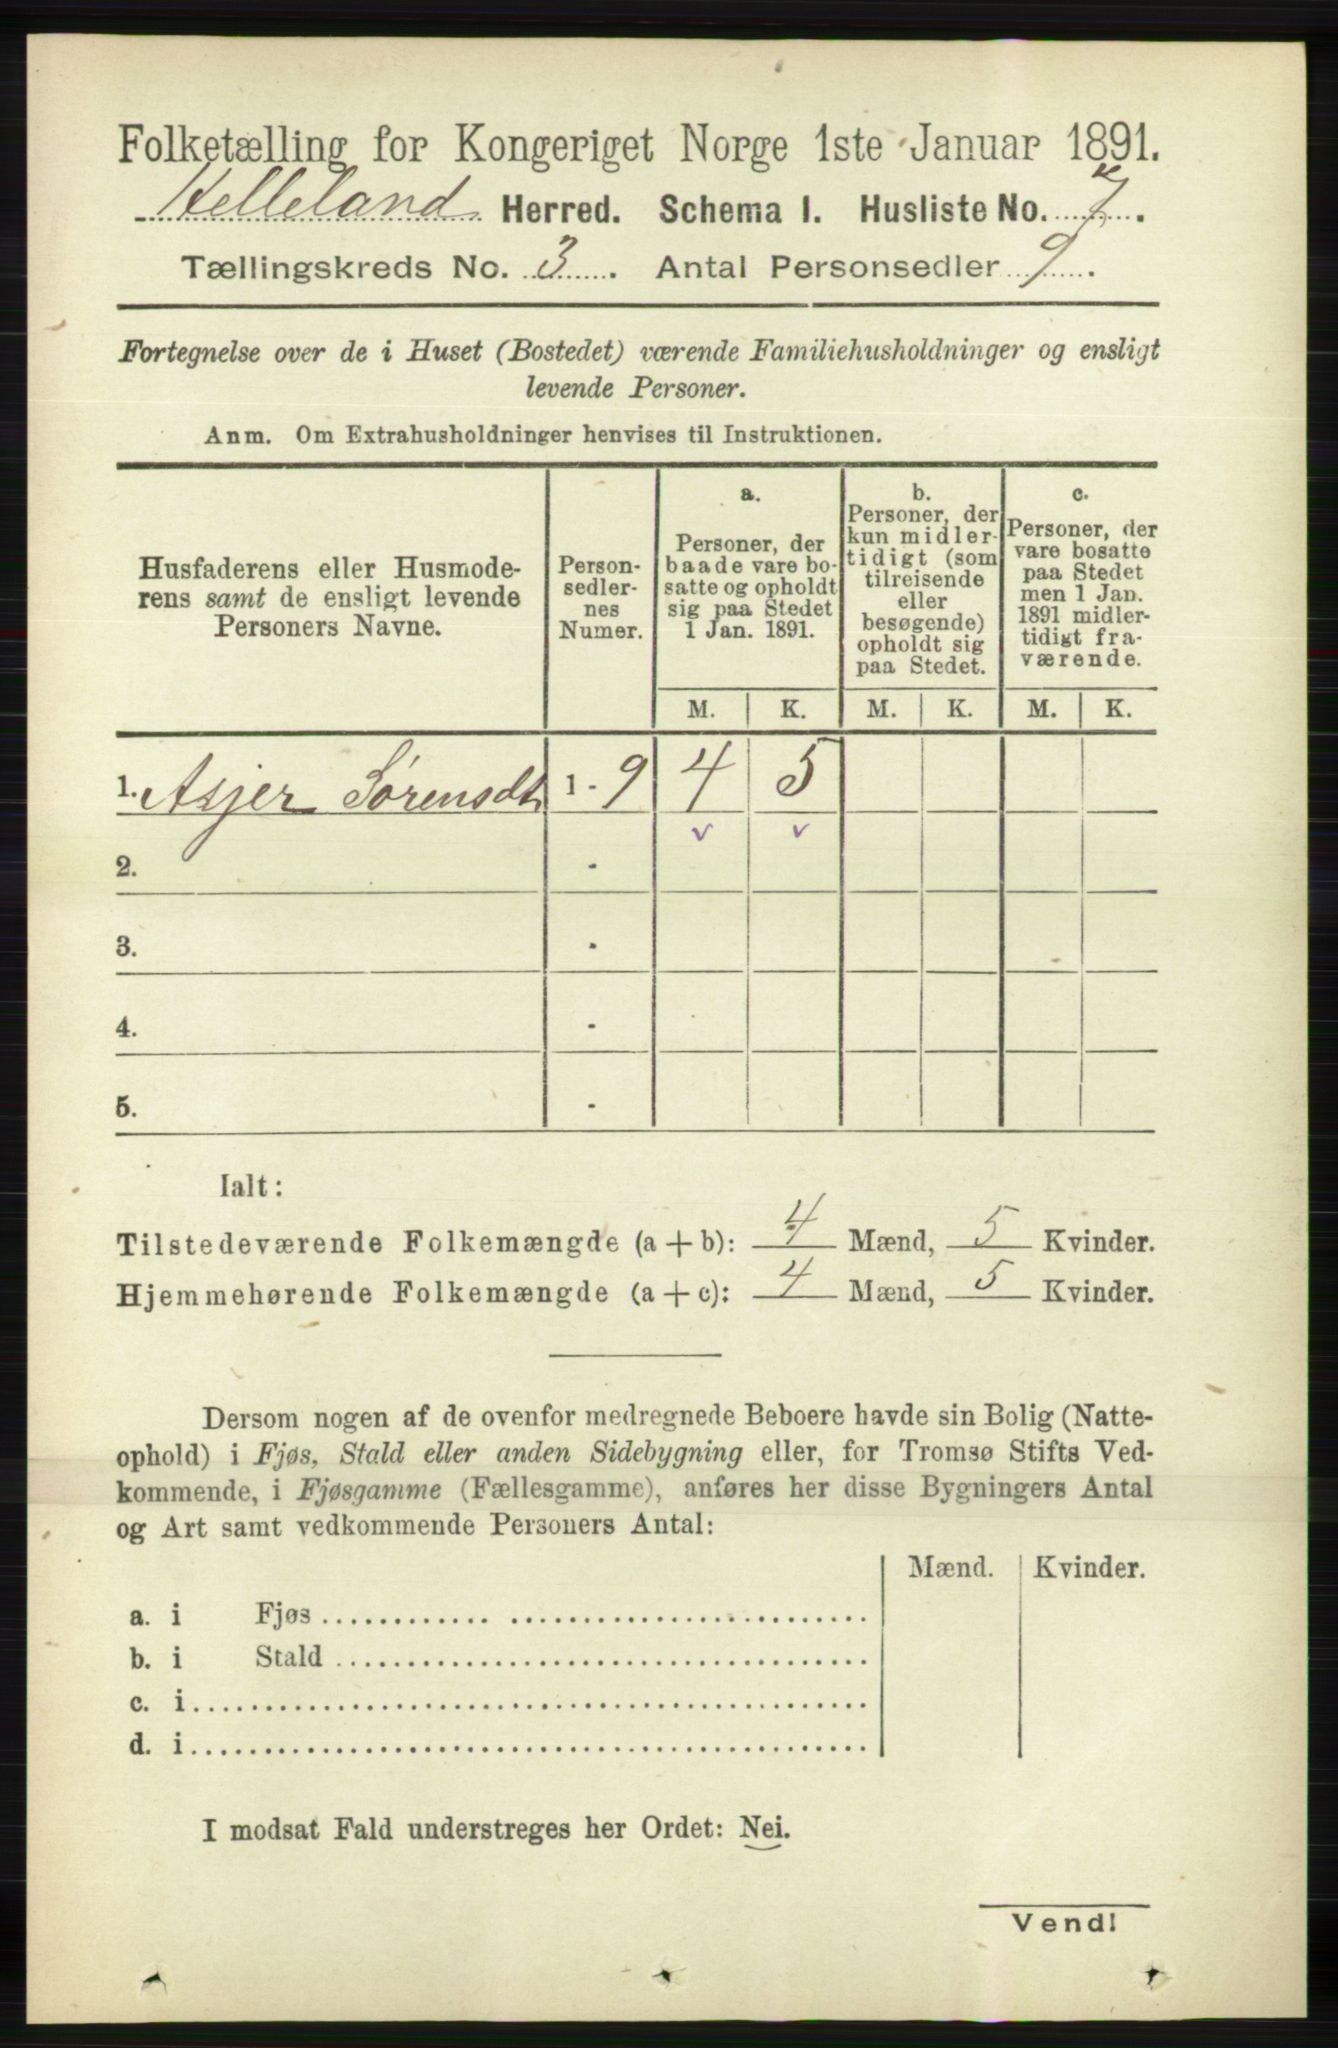 Folketælling for Kongeriget Norge 1ste Januar 1891.
Helleland Herred. Schema I. Husliste No. 7.
Tællingskreds No. 3. Antal Personsedler 9.
Fortegnelse over de i Huset (Bostedet) værende Familiehusholdninger og ensligt
levende Personer.
Anm. Om Extrahusholdninger henvises til Instruktionen.
Husfaderens eller Husmode-
rens samt de ensligt levende
Personers Navne.
Person-
sedler-
nes
Numer.
a.
Personer, der
baade vare bo-
satte og opholdt
sig paa Stedet
1 Jan. 1891.
b.
Personer, der
kun midler-
tidigt (som
tilreisende
eller
besøgende)
opholdt sig
paa Stedet.
c.
Personer, der
vare bosatte
paa Stedet
men 1 Jan.
1891 midler-
tidigt fra-
værende.
M. K. M. K. M. K.
1. Asjer Sörensdt 1 - 9 4 5
v v
2. -
3. -
4. -
5. -
Ialt:
Tilstedeværende Folkemængde (a + b): 4 Mænd, 5 Kvinder.
Hjemmehørende Folkemængde (a + c): 4 Mænd, 5 Kvinder.
Dersom nogen af de ovenfor medregnede Beboere havde sin Bolig (Natte-
ophold) i Fjøs, Stald eller anden Sidebygning eller, for Tromsø Stifts Ved-
kommende, i Fjøsgamme (Fællesgamme), anføres her disse Bygningers Antal
og Art samt vedkommende Personers Antal:
Mænd. Kvinder.
a. i Fjøs
b. i Stald
c. i
d. i
I modsat Fald understreges her Ordet: Nei.
Vend!